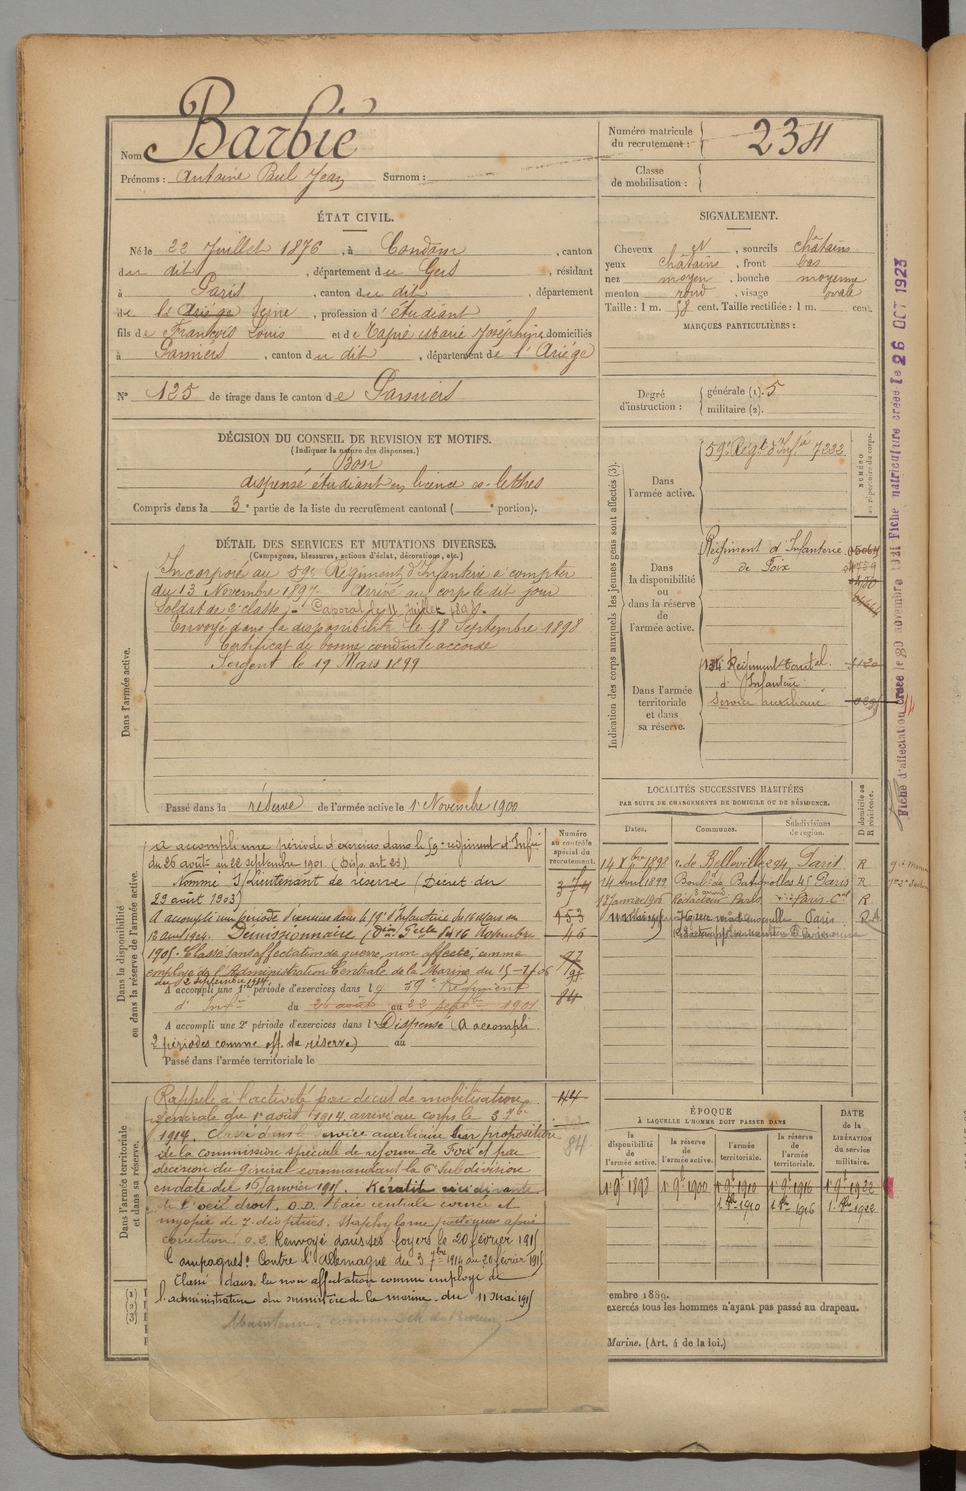 Nom Barbié
Prénoms : Antoine Paul Jean Surnom :
Numéro matricule
du recrutement : 234
Classe
de mobilisation :
ÉTAT CIVIL.
Né le 22 Juillet 1876, à Condom, canton
du dit, département du Gers, résidant
à Paris, canton du dit, département
de la Ariège Seine, profession d'étudiant
fils de François Louis et de Marie Joséphine domiciliés
à Pamiers, canton du dit, département de l'Ariège
N° 125 de tirage dans le canton de Pamiers
SIGNALEMENT.
Cheveux N, sourcils châtains
yeux châtains, front bas
nez moyen, bouche moyenne
menton rond, visage ovale
Taille : 1 m. 58 cent. Taille rectifiée : 1 m. cent.
MARQUES PARTICULIÈRES :
Degré
d'instruction :
générale (1). 5
militaire (2).
DÉCISION DU CONSEIL DE REVISION ET MOTIFS.
(Indiquer la nature des dispenses.)
Bon
dispensé étudiant en licence ès-lettres
Compris dans la 3e partie de la liste du recrutement cantonal ( e portion).
DÉTAIL DES SERVICES ET MUTATIONS DIVERSES.
(Campagnes, blessures, actions d'éclat, décorations, etc.)
Dans l'armée active.
Incorporé au 59e Régiment d'Infanterie à compter
du 13 Novembre 1897. Arrivé au corps le dit jour
Soldat de 2e classe. Caporal le 11 juillet 1898.
Envoyé dans la disponibilité le 18 Septembre 1898
Certificat de bonne conduite accordé
Sergent le 19 Mars 1899
Passé dans la réserve de l'armée active le 1er Novembre 1900
Indication des corps auxquels les jeunes gens sont affectés (3).
NUMÉRO
au répertoire du corps.
Dans
l'armée active.
59e Régt d'Infie 7232
Dans
la disponibilité
ou
dans la réserve
de
l'armée active.
Régiment d'Infanterie
de Foix
Dans l'armée
territoriale
et dans
sa réserve.
134e Régiment territal.
d'Infanterie
Service auxiliaire
LOCALITÉS SUCCESSIVES HABITÉES
PAR SUITE DE CHANGEMENTS DE DOMICILE OU DE RÉSIDENCE.
Dates. Communes. Subdivisions
de region. D domicile ou
R résidence.
14 Xbre 1898 r. de Belleville 294 Paris R
14 avril 1899 Bould de Batignolles 45 Paris R
18 janvier 1906 Rédacteur Paris R
Paris
Dans la disponibilité
ou dans la réserve de l'armée active.
Numéro
au contrôle
spécial du
recrutement.
A accompli une période d'exercices dans le 59e régiment d'Infie
du 26 août au 22 septembre 1901 (Disp. art. 23)
Nommé S/Lieutenant de réserve (Décret du
29 août 1903)
A accompli une période d'exercices dans le d'Infanterie du 16 Mars au
12 avril 1904. Démissionnaire ( 16 Novembre
1905. Classé sans affectation de guerre, non affecté, comme
employé de l'Administration Centrale de la Marine du
A accompli une 1re période d'exercices dans le 59e Régiment
d'Infie du 26 août au 22 septbre 1901
A accompli une 2e période d'exercices dans l Dispensé (A accompli
2 périodes comme off. de réserve) au
Passé dans l'armée territoriale le
Dans l'armée territoriale
et dans sa réserve.
Rappelé à l'activité par décret de mobilisation
générale du 1er août 1914, arrivé au corps le 3 7bre
1914. Classé dans le service auxiliaire sur proposition
de la commission spéciale de réforme de Foix et par
décision du Général commandant la 6e Subdivision
en date du 15 janvier 1915. Kératite récidivante
de l'oeil droit. O.D. Taie centrale et
myopie de 7 dioptries. Staphylome postérieur après
correction. O.G. Renvoyé dans ses foyers le 20 février 1915
Campagnes : Contre l'Allemagne du 3 7bre 1914 au 20 février 1915
Classé dans la non affectation comme employé de
l'administration du ministère de la marine du 11 mai 1915
Maintenu
44
84
ÉPOQUE
À LAQUELLE L'HOMME DOIT PASSER DANS
DATE
DE LA
LIBÉRATION
DU SERVICE
MILITAIRE.
la
disponibilité
de
l'armée active.
la réserve
de
l'armée active.
l'armée
territoriale.
la réserve
de
l'armée
territoriale.
1er 9bre 1898 1er 9bre 1900 1er 9bre 1910 1er 9bre 1916 1er 9bre 1922
1er 8bre 1910 1er 8bre 1916 1er 8bre 1922
(1)
(2)
(3)
vembre 1889.
exercés tous les hommes n'ayant pas passé au drapeau.
Marine. (Art. 4 de la loi.)
Fiche d'affectation créée le 30 novembre 1921 Fiche matriculture créée le 26 OCT 1923